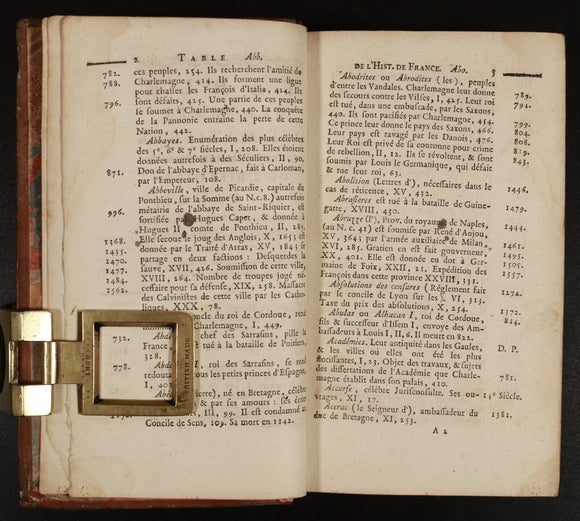 2 TABLE Abb.
782. ces peuples, 254. Ils recherchent l'amitié du
788. Charlemagne, 414. Ils forment une ligue
pour chasser les François d'Italie, 424. Ils
796. sont défaits, 425. Une partie de ces peuples
se soumet à Charlemagne, 440. La conquête
de la Pannonie entraîne la perte de cette
Nation, 442.
Abbayes. Enumération des plus célèbres
des 5e, 6e & 7e siècles, I, 208. Elles étoient
données autrefois à des Séculiers, II, 90.
871. Don de l'abbaye d'Epernac, fait à Carloman,
par l'Empereur, 108.
Abbeville, ville de Picardie, capitale du
Ponthieu, sur la Somme (Au N.c. 8.) autrefois
métairie de l'abbaye de Saint-Riquier, est
996. fortifiée par Hugues Capet, & donnée à
Hugues II comte de Ponthieu, II, 285.
1368. Elle secoue le joug des Anglois, X, 165 & est
1435. donnée par le Traité d'Arras, XV, 184 & se
1470. partage en deux factions: Desquerdes la
1484. sauve, XVII, 426. Soumission de cette ville,
1562. XVIII, 264. Nombre de troupes jugé né-
cessaire pour sa défense, XIX, 258. Massacre
des Calvinistes de cette ville par les Catho-
liques, XXX, 78.
oncle du roi de Cordoue, rend
hommage Charlemagne, I, 449.
732. Abdé chef des Sarrasins, pille la
France est tué à la bataille de Poitiers,
328.
778. Abdé I, roi des Sarrasins, se rend
redouta tous les petits princes d'Espagne,
I, 40
Abé ierre), né en Bretagne, célèbre
& par ses amours: ses écrits
III, 99. Il est condamné au
Concile de Sens, 109. Sa mort en 1142.
INCH
BRITISH MADE
DE L'HIST. DE FRANCE. Abo. 3
Abodrites ou Abrodites (les), peuples
d'entre les Vandales. Charlemagne leur donne
789. des secours contre les Vilses, I, 425. Leur roi
794. est tué, dans une embuscade, par les Saxons,
799. 440. Ils sont pacifiés par Charlemagne, 454.
804. Ce prince leur donne le pays des Saxons, 466.
808. Leur pays est ravagé par les Danois, 476.
819. Leur Roi est privé de sa couronne pour crime
843. de rebellion, II, 12. Ils se révoltent, & sont
soumis par Louis le Germanique, qui défait
& tue leur roi, 63.
Abolition (Lettres d'), nécessaires dans le
1446. cas de réticence, XV, 432.
Abrasieres est tué à la bataille de Guine-
1479. gatte, XVIII, 430.
Abruzze (l'), Prov. du royaume de Naples,
1444. (au N. c. 41) est soumise par René d'Anjou,
1461. XV, 364 & par l'armée auxiliaire de Milan,
1495. XVI, 285. Gratien en est fait gouverneur,
1505. XX, 401. Elle est donnée en dot à Ger-
1557. maine de Foix, XXII, 21. Expédition des
François dans cette province XXVIII, 331.
Absolutions des censures (Réglement fait
1274. par le concile de Lyon sur les). VI, 323.
1372. Taxe du prix des absolutions, X, 254.
814. Abulas ou Alhacan I, roi de Cordoue,
fils & successeur d'Issem I, envoye des Am-
bassadeurs à Louis I, II, 6. Il meurt en 822.
Académies. Leur antiquité dans les Gaules,
D. P. & les villes où elles ont été les plus
florissantes, I, 23. Objet des travaux, & sujets
781. des dissertations de l'Académie que Charle-
magne établit dans son palais, 410.
Accurse, célèbre Jurisconsulte. Ses ou-
14e Siècle. vrages, XI, 17.
Acerac (le Seigneur d'), ambassadeur du
1381. duc de Bretagne, XI, 253.
A 2